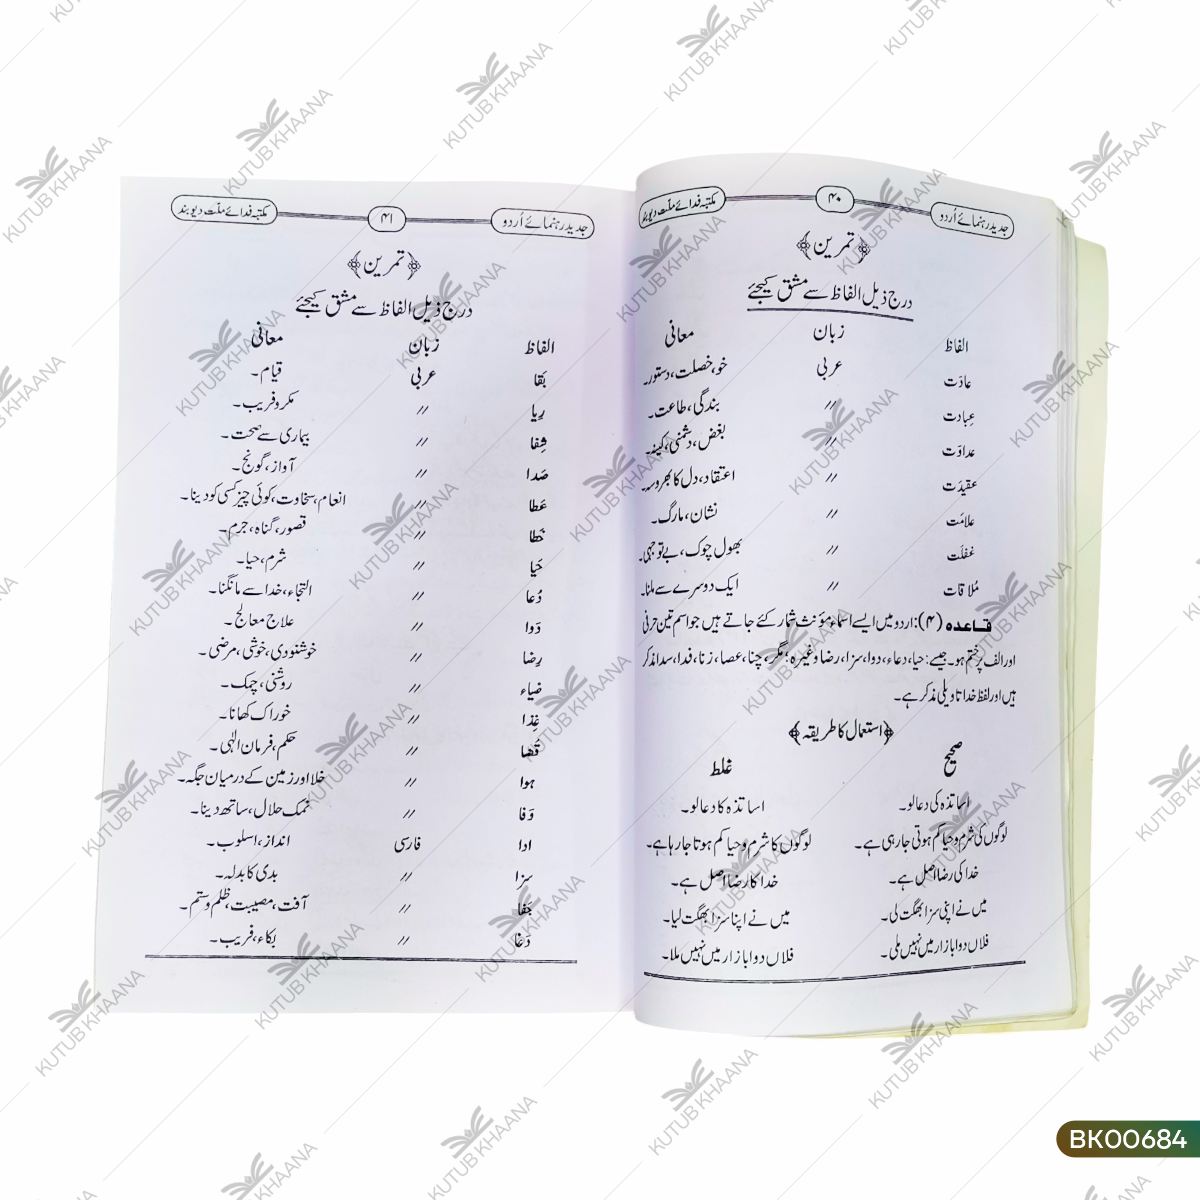 جدید رہنمائے اُردو ۴۰ مکتبہ فدائے ملّت دیوبند
﴿تمرین﴾
درج ذیل الفاظ سے مشق کیجئے
الفاظ زبان معانی
عادَت عربی خو، خصلت، دستور۔
عِبادت 〃 بندگی، طاعت۔
عداوَت 〃 بغض، دشمنی، کینہ۔
عقیدَت 〃 اعتقاد، دل کا بھروسہ۔
علامَت 〃 نشان، مارگ۔
غفلَت 〃 بھول چوک، بے توجہی۔
مُلاقات 〃 ایک دوسرے سے ملنا۔
قاعدہ (۴): اردو میں ایسے اسماء مؤنث شمار کئے جاتے ہیں جو اسم تین حرفی
اور الف پر ختم ہو۔ جیسے: حیا، دعاء، دوا، سزا، رضا وغیرہ؛ مگر، چنا، عصا، زنا، فدا، سدا مذکر
ہیں اور لفظ خدا تاویلی مذکر ہے۔
﴿استعمال کا طریقہ﴾
صحیح غلط
اساتذہ کی دعا لو۔ اساتذہ کا دعا لو۔
لوگوں کی شرم وحیا کم ہوتی جارہی ہے۔ لوگوں کا شرم وحیا کم ہوتا جارہا ہے۔
خدا کی رضا اصل ہے۔ خدا کا رضا اصل ہے۔
میں نے اپنی سزا بھگت لی۔ میں نے اپنا سزا بھگت لیا۔
فلاں دوا بازار میں نہیں ملی۔ فلاں دوا بازار میں نہیں ملا۔
جدید رہنمائے اُردو ۴۱ مکتبہ فدائے ملّت دیوبند
﴿تمرین﴾
درج ذیل الفاظ سے مشق کیجئے
الفاظ زبان معانی
بَقا عربی قیام۔
رِیا 〃 مکروفریب۔
شِفا 〃 بیماری سے صحت۔
صَدا 〃 آواز، گونج۔
عَطا 〃 انعام، سخاوت، کوئی چیز کسی کو دینا۔
خَطا 〃 قصور، گناہ، جرم۔
حَیا 〃 شرم، حیا۔
دُعا 〃 التجاء، خدا سے مانگنا۔
دَوا 〃 علاج معالج۔
رِضا 〃 خوشنودی، خوشی، مرضی۔
ضیاء 〃 روشنی، چمک۔
غِذا 〃 خوراک کھانا۔
قَضا 〃 حکم، فرمان الٰہی۔
ہوا 〃 خلا اور زمین کے درمیان جگہ۔
وَفا 〃 نمک حلال، ساتھ دینا۔
ادا فارسی انداز، اسلوب۔
سزا 〃 بدی کا بدلہ۔
جَفا 〃 آفت، مصیبت، ظلم وستم۔
دَغا 〃 بکاء، فریب۔
KUTUB KHAANA
BK00684